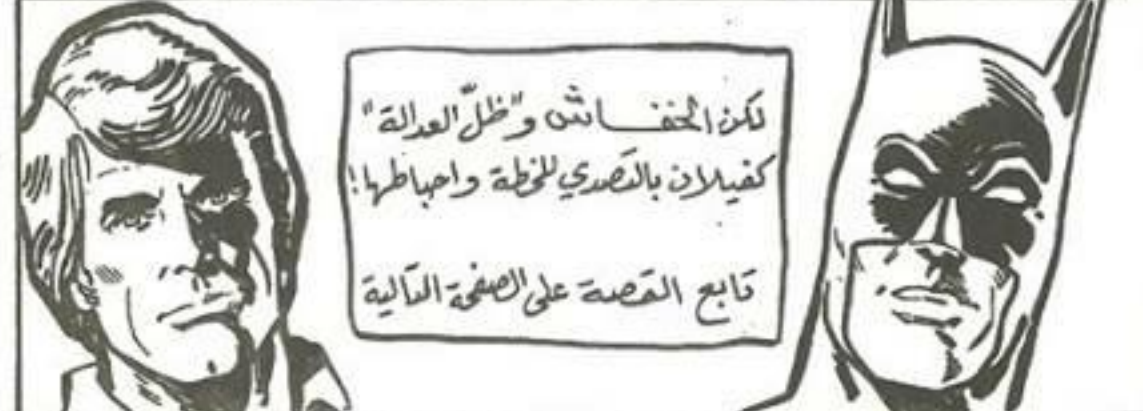 لكن الخفاش و"ظلّ العدالة"
كفيلان بالتصدي للخطة واحباطها!
تابع القصة على الصفحة التالية